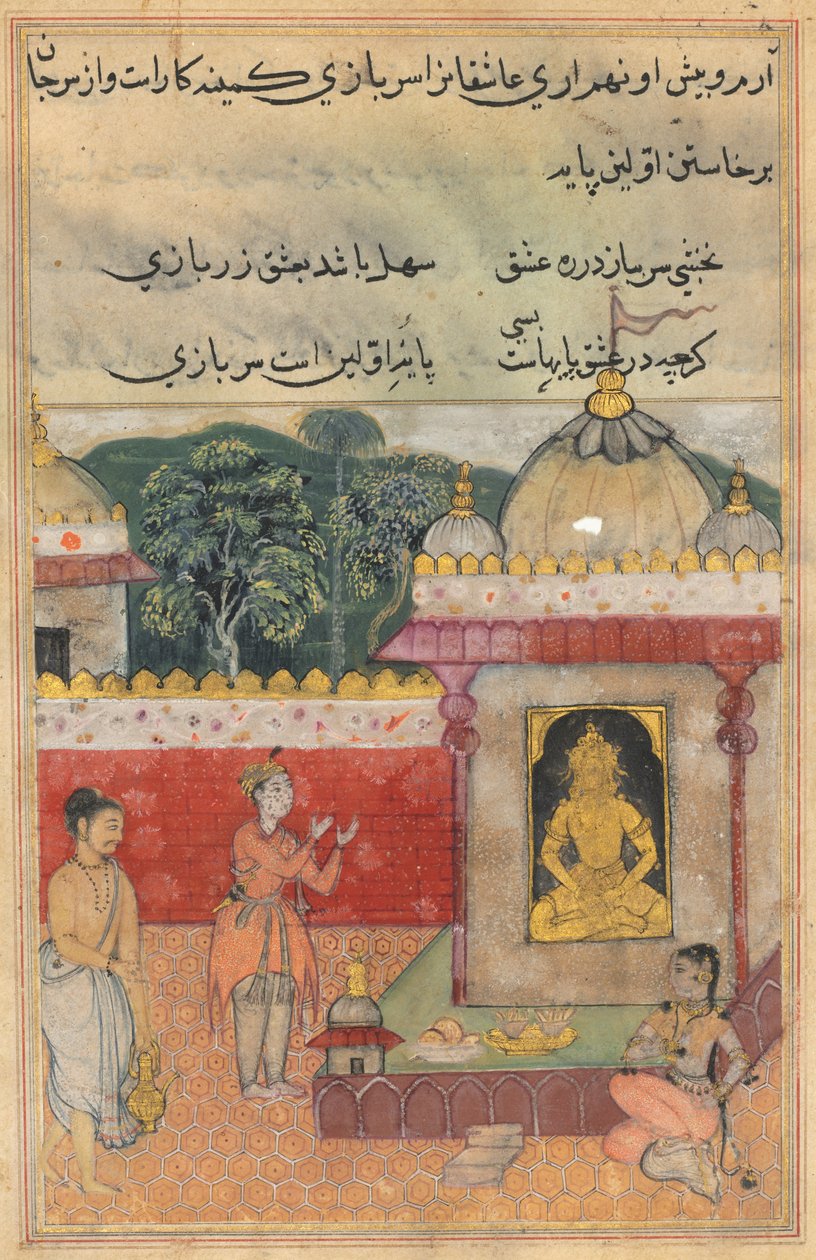 آرم و پیش او نهم اری عاشقانرا سر بازی کمینه کار است و از سر جان
بر خاستن اوّلین پایه
نخشبی سر بباز در ره عشق سهل باشد بعشق زر بازی
گرچه در عشق پایهاست بسی پایهٔ اوّلین است سر بازی